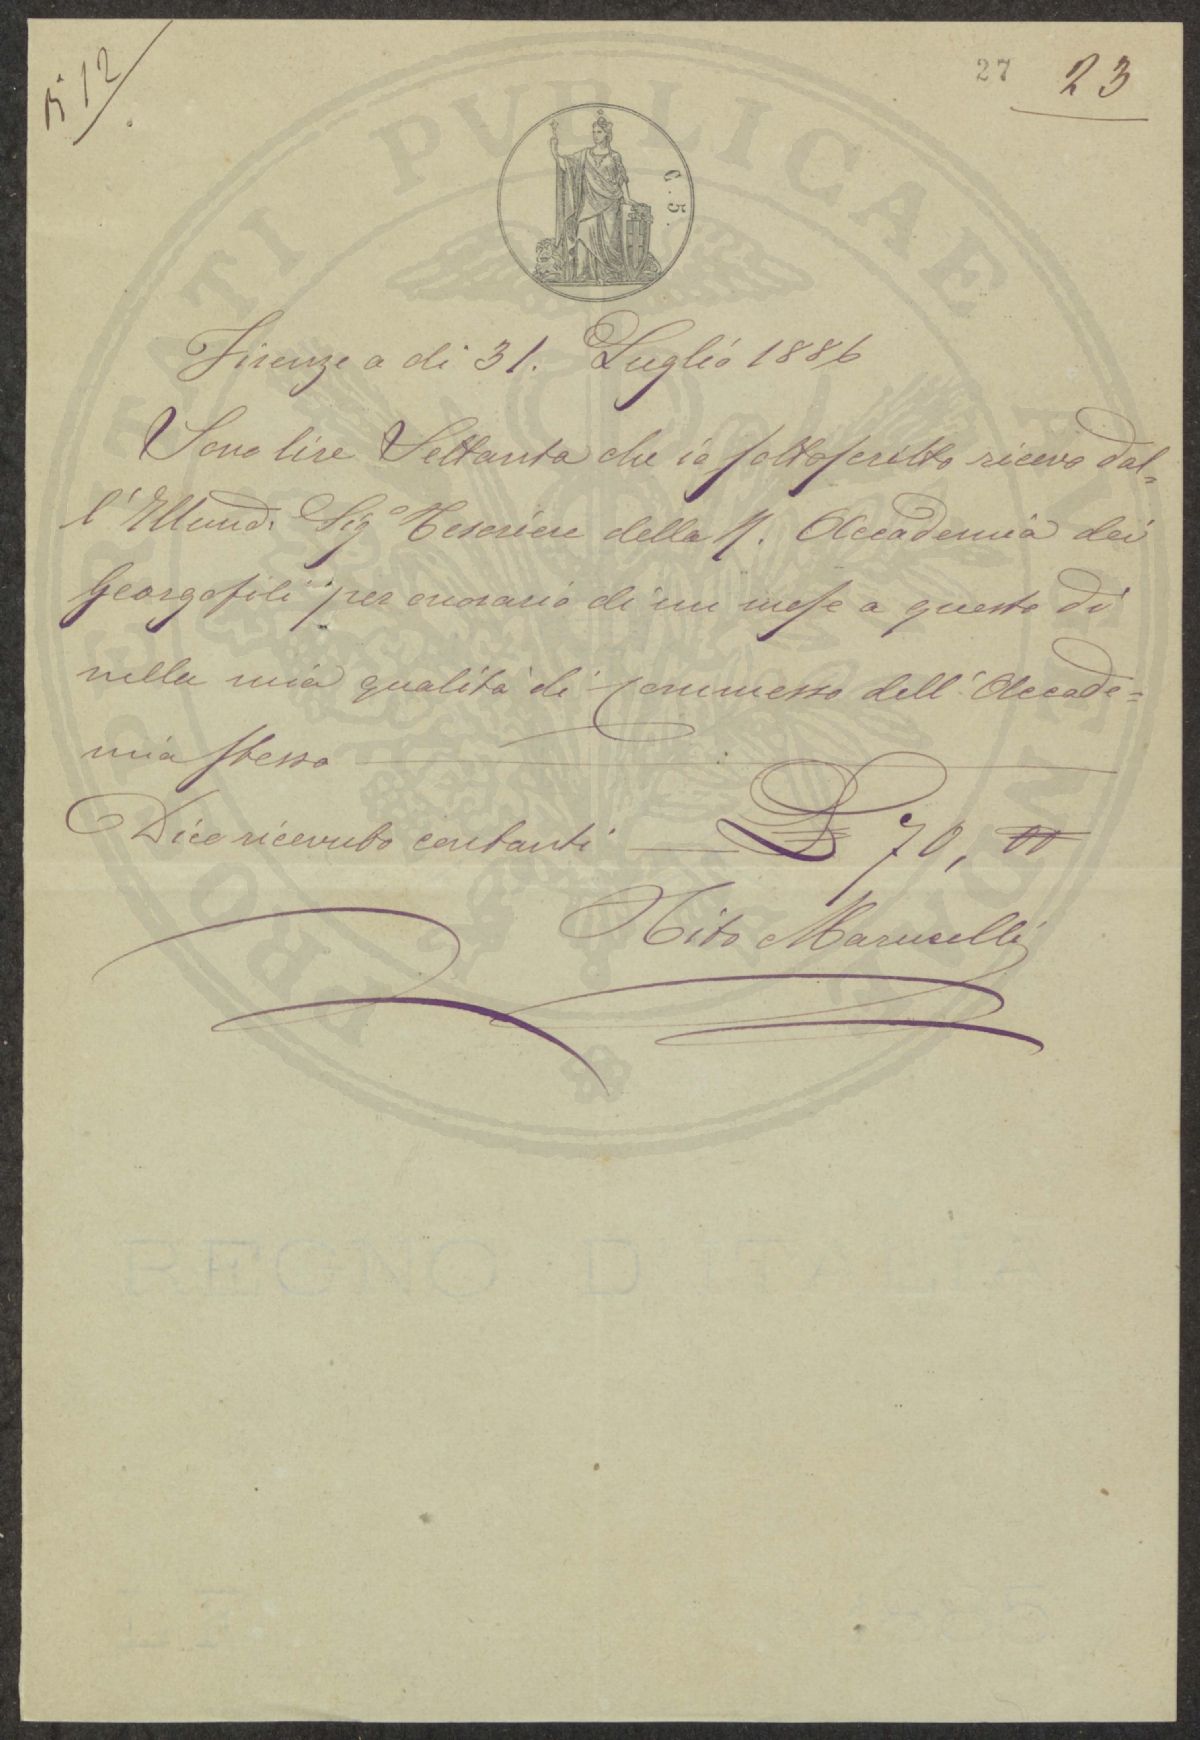 N° 12
27 23
C. 5.
PROPRIETATI PUBLICAE AVGENDAE
Firenze a di 31. Luglio 1886
Sono lire Settanta che io sottoscritto ricevo dal-
l' Sig.e Tesoriere della R. Accademia dei
Georgofili per onorario di un mese a questo dì
nella mia qualità di Commesso dell' Accade=
mia stessa
Dico ricevuto contanti £ 70, 00
Tito Marucelli
REGNO D'ITALIA